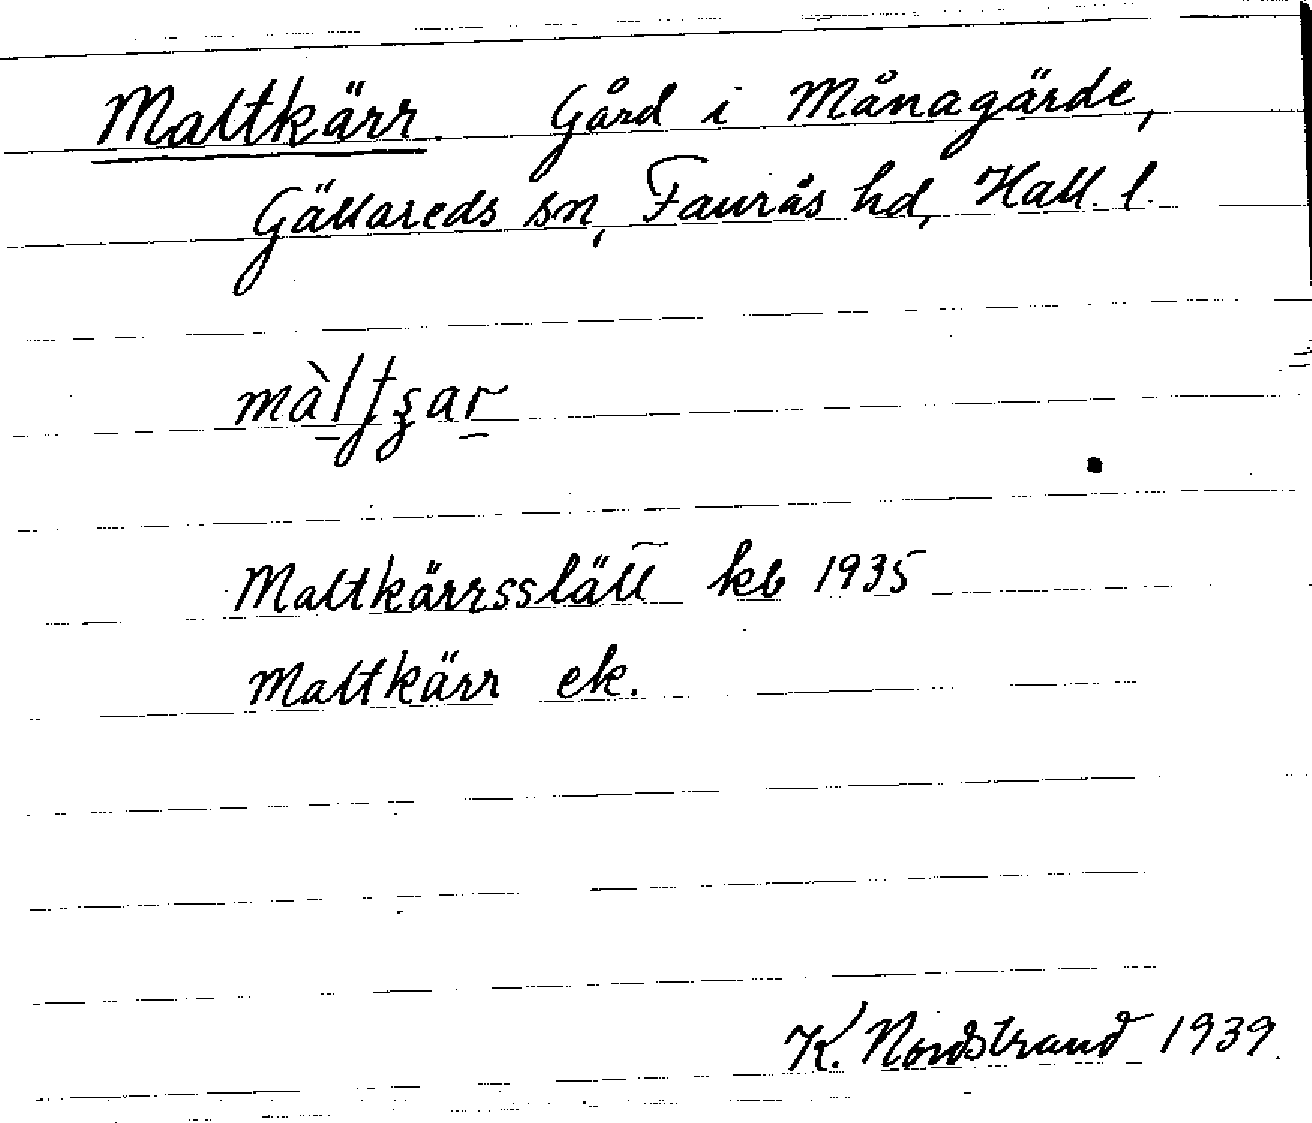 Maltkärr. Gård i Månagärde,
Gällareds sn, Faurås hd, Hall. l.
màltʒar
Maltkärrsslätt kb 1935
Maltkärr ek.
K. Nordstrand 1939